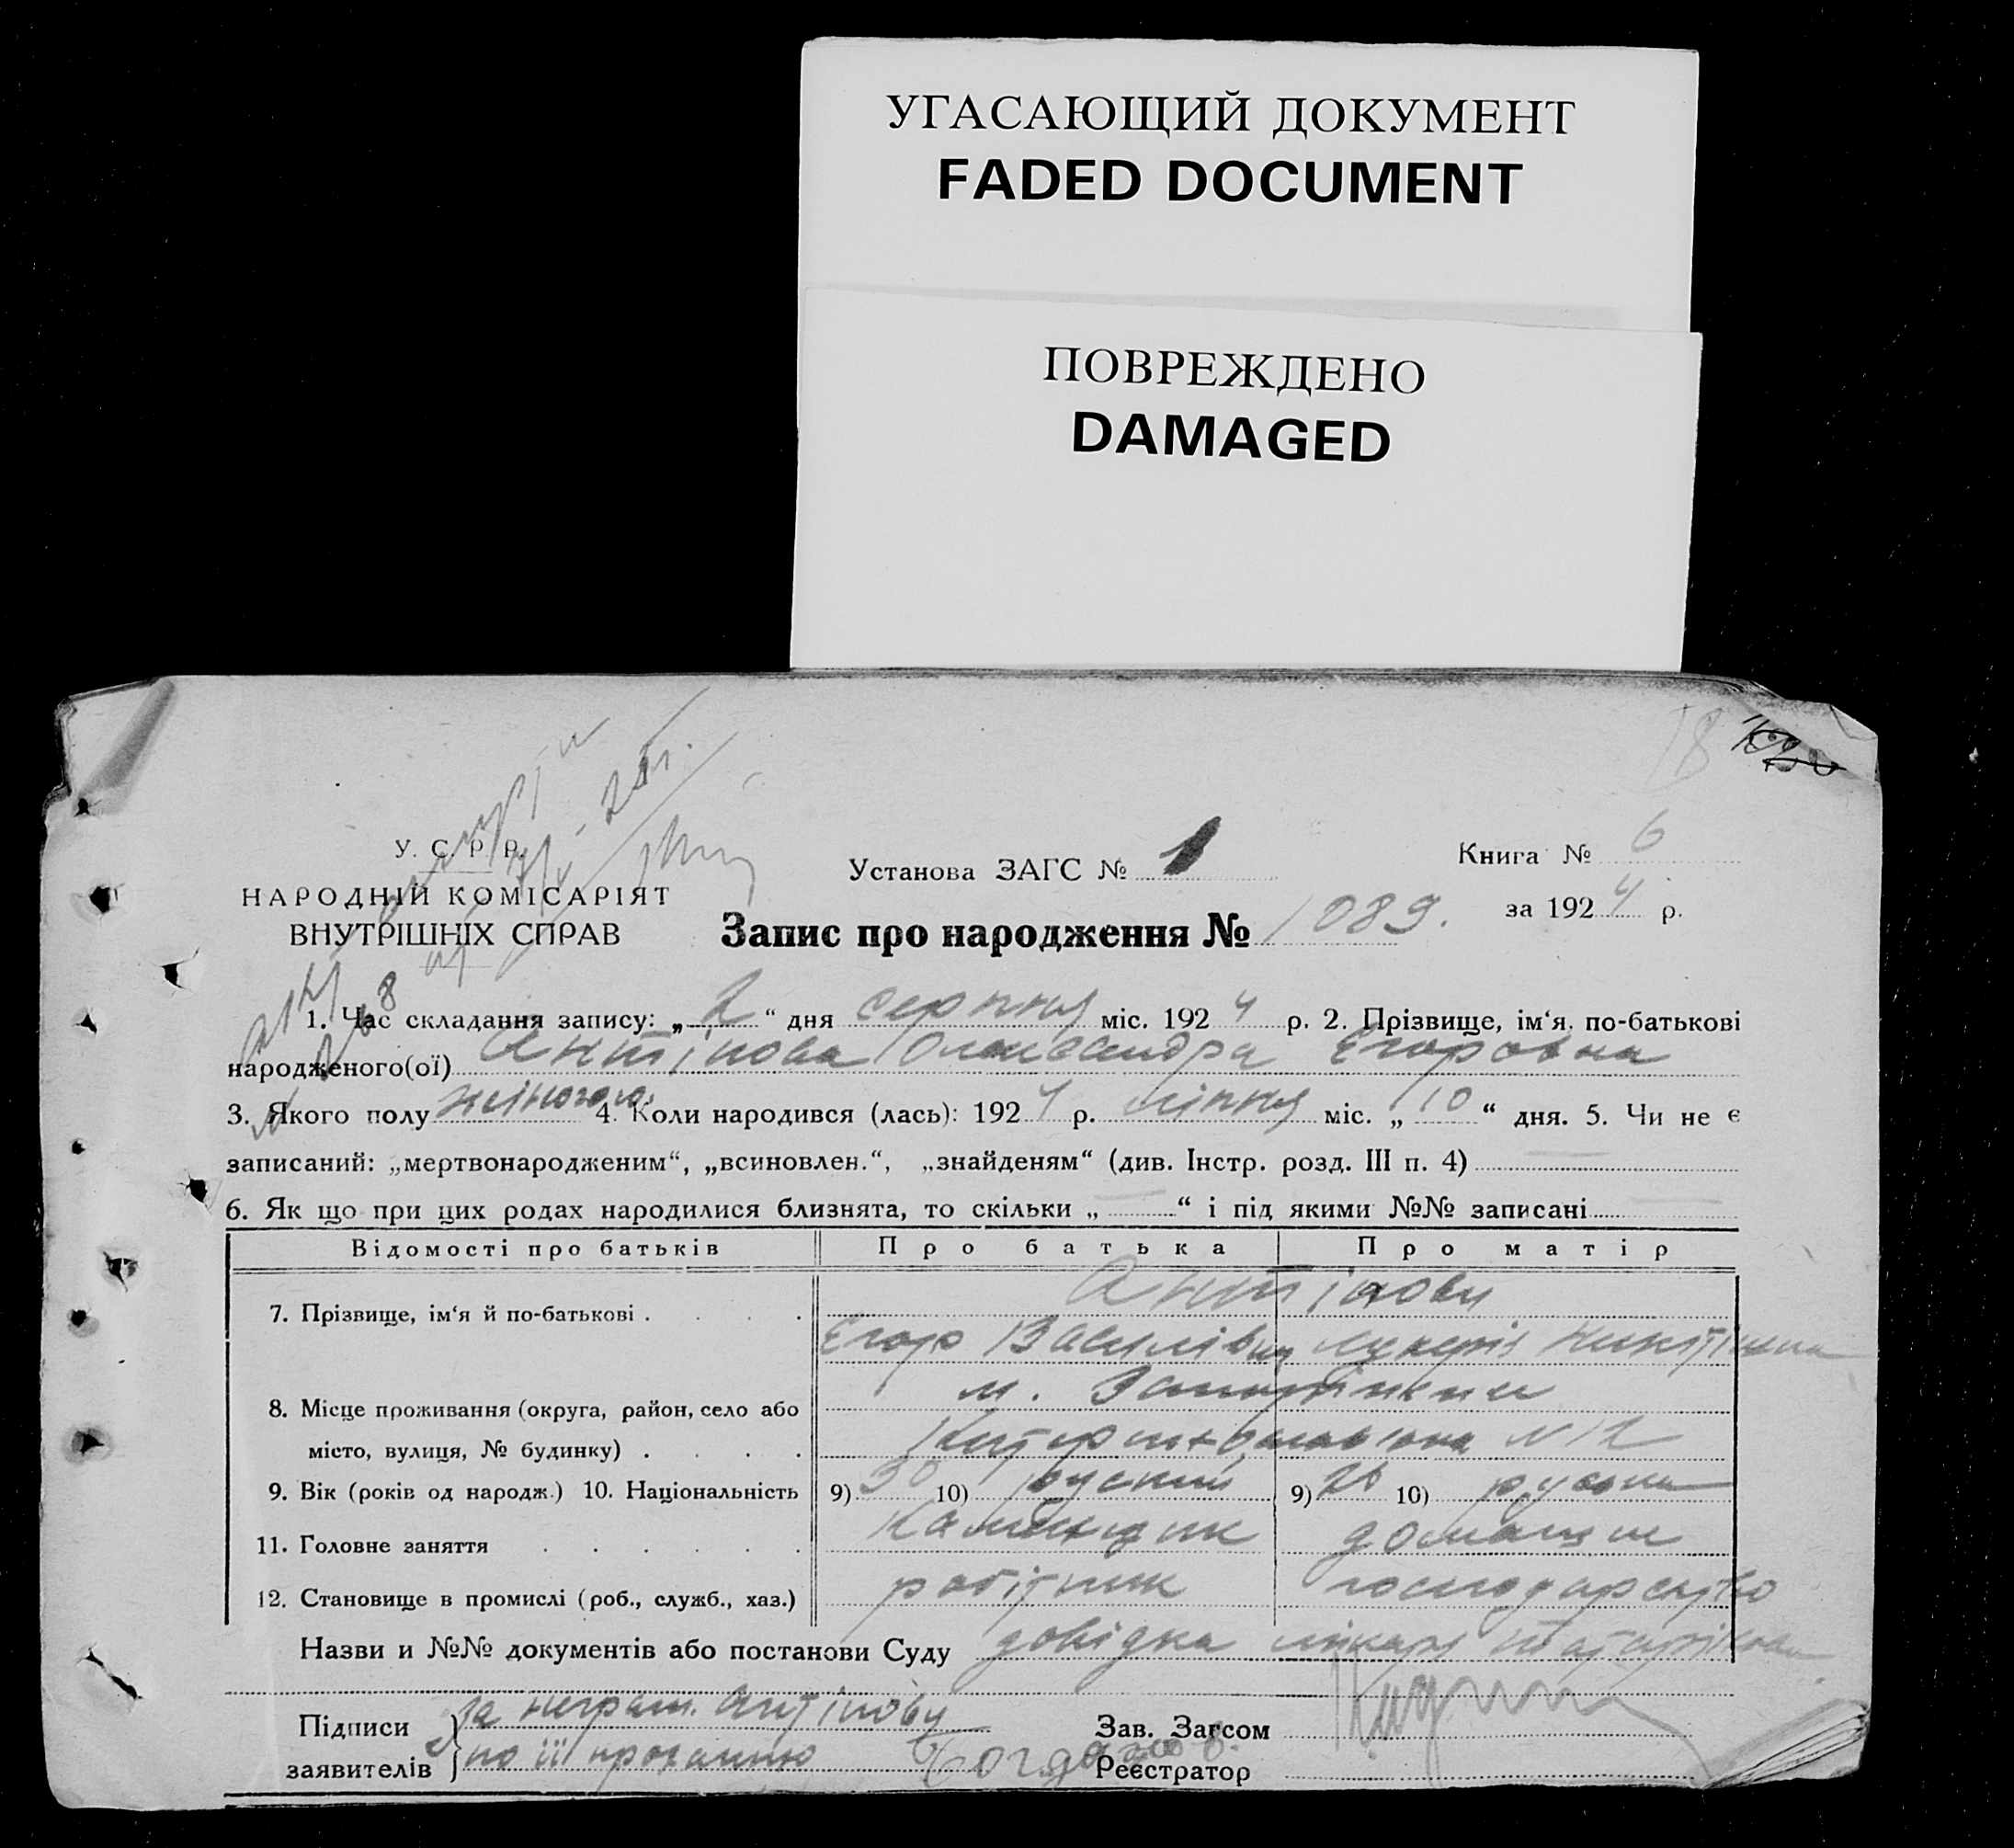 УГАСАЮЩИЙ ДОКУМЕНТ
FADED DOCUMENT
ПОВРЕЖДЕНО
DAMAGED
18
У. С. Р. Р.
НАРОДНІЙ КОМІСАРІЯТ
ВНУТРІШНІХ СПРАВ
Установа ЗАГС № 1
Книга № 6
за 1924 р.
Запис про народження № 1089.
1. Час складання запису: „2“ дня серпня міс. 1924 р. 2. Прізвище, ім‘я, по-батькові
народженого(ої) Антіпова Олександра Егоровна
3. Якого полу жіночого. 4. Коли народився (лась): 1924 р. липня міс. „10“ дня. 5. Чи не є
записаний: „мертвонародженим“, „всиновлен.“, „знайденям“ (див. Інстр. розд. III п. 4)
6. Як що при цих родах народилися близнята, то скільки „ — “ і під якими №№ записані
Відомості про батьків Про батька Про матір
Антіпови
7. Прізвище, ім‘я й по-батькові
Егор Василівич Лукерія
м.
8. Місце проживання (округа, район, село або
місто, вулиця, № будинку) N 12
9. Вік (років од народж.) 10. Національність 9) 30 10) руский 9) 26 10) руская
11. Головне заняття домашнє
12. Становище в промислі (роб., служб., хаз.) робітник господарство
Назви и №№ документів або постанови Суду довідка лікаря
Підписи за неграм. Антіпову Зав. Загсом
заявителів по її проханню Богданов. Реєстратор